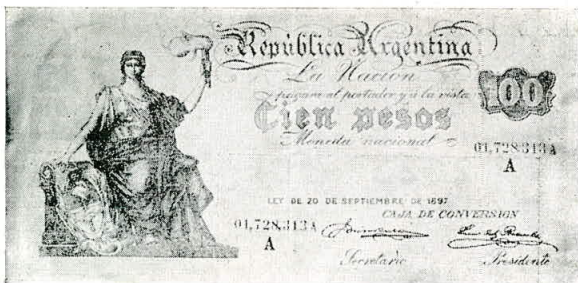 República Argentina
La Nación
pagará al portador y á la vista
100
Cien pesos
Moneda nacional
01,728,313A
A
LEY DE 20 DE SEPTIEMBRE DE 1897
CAJA DE CONVERSION
01,728,313A
A
Secretario
Presidente